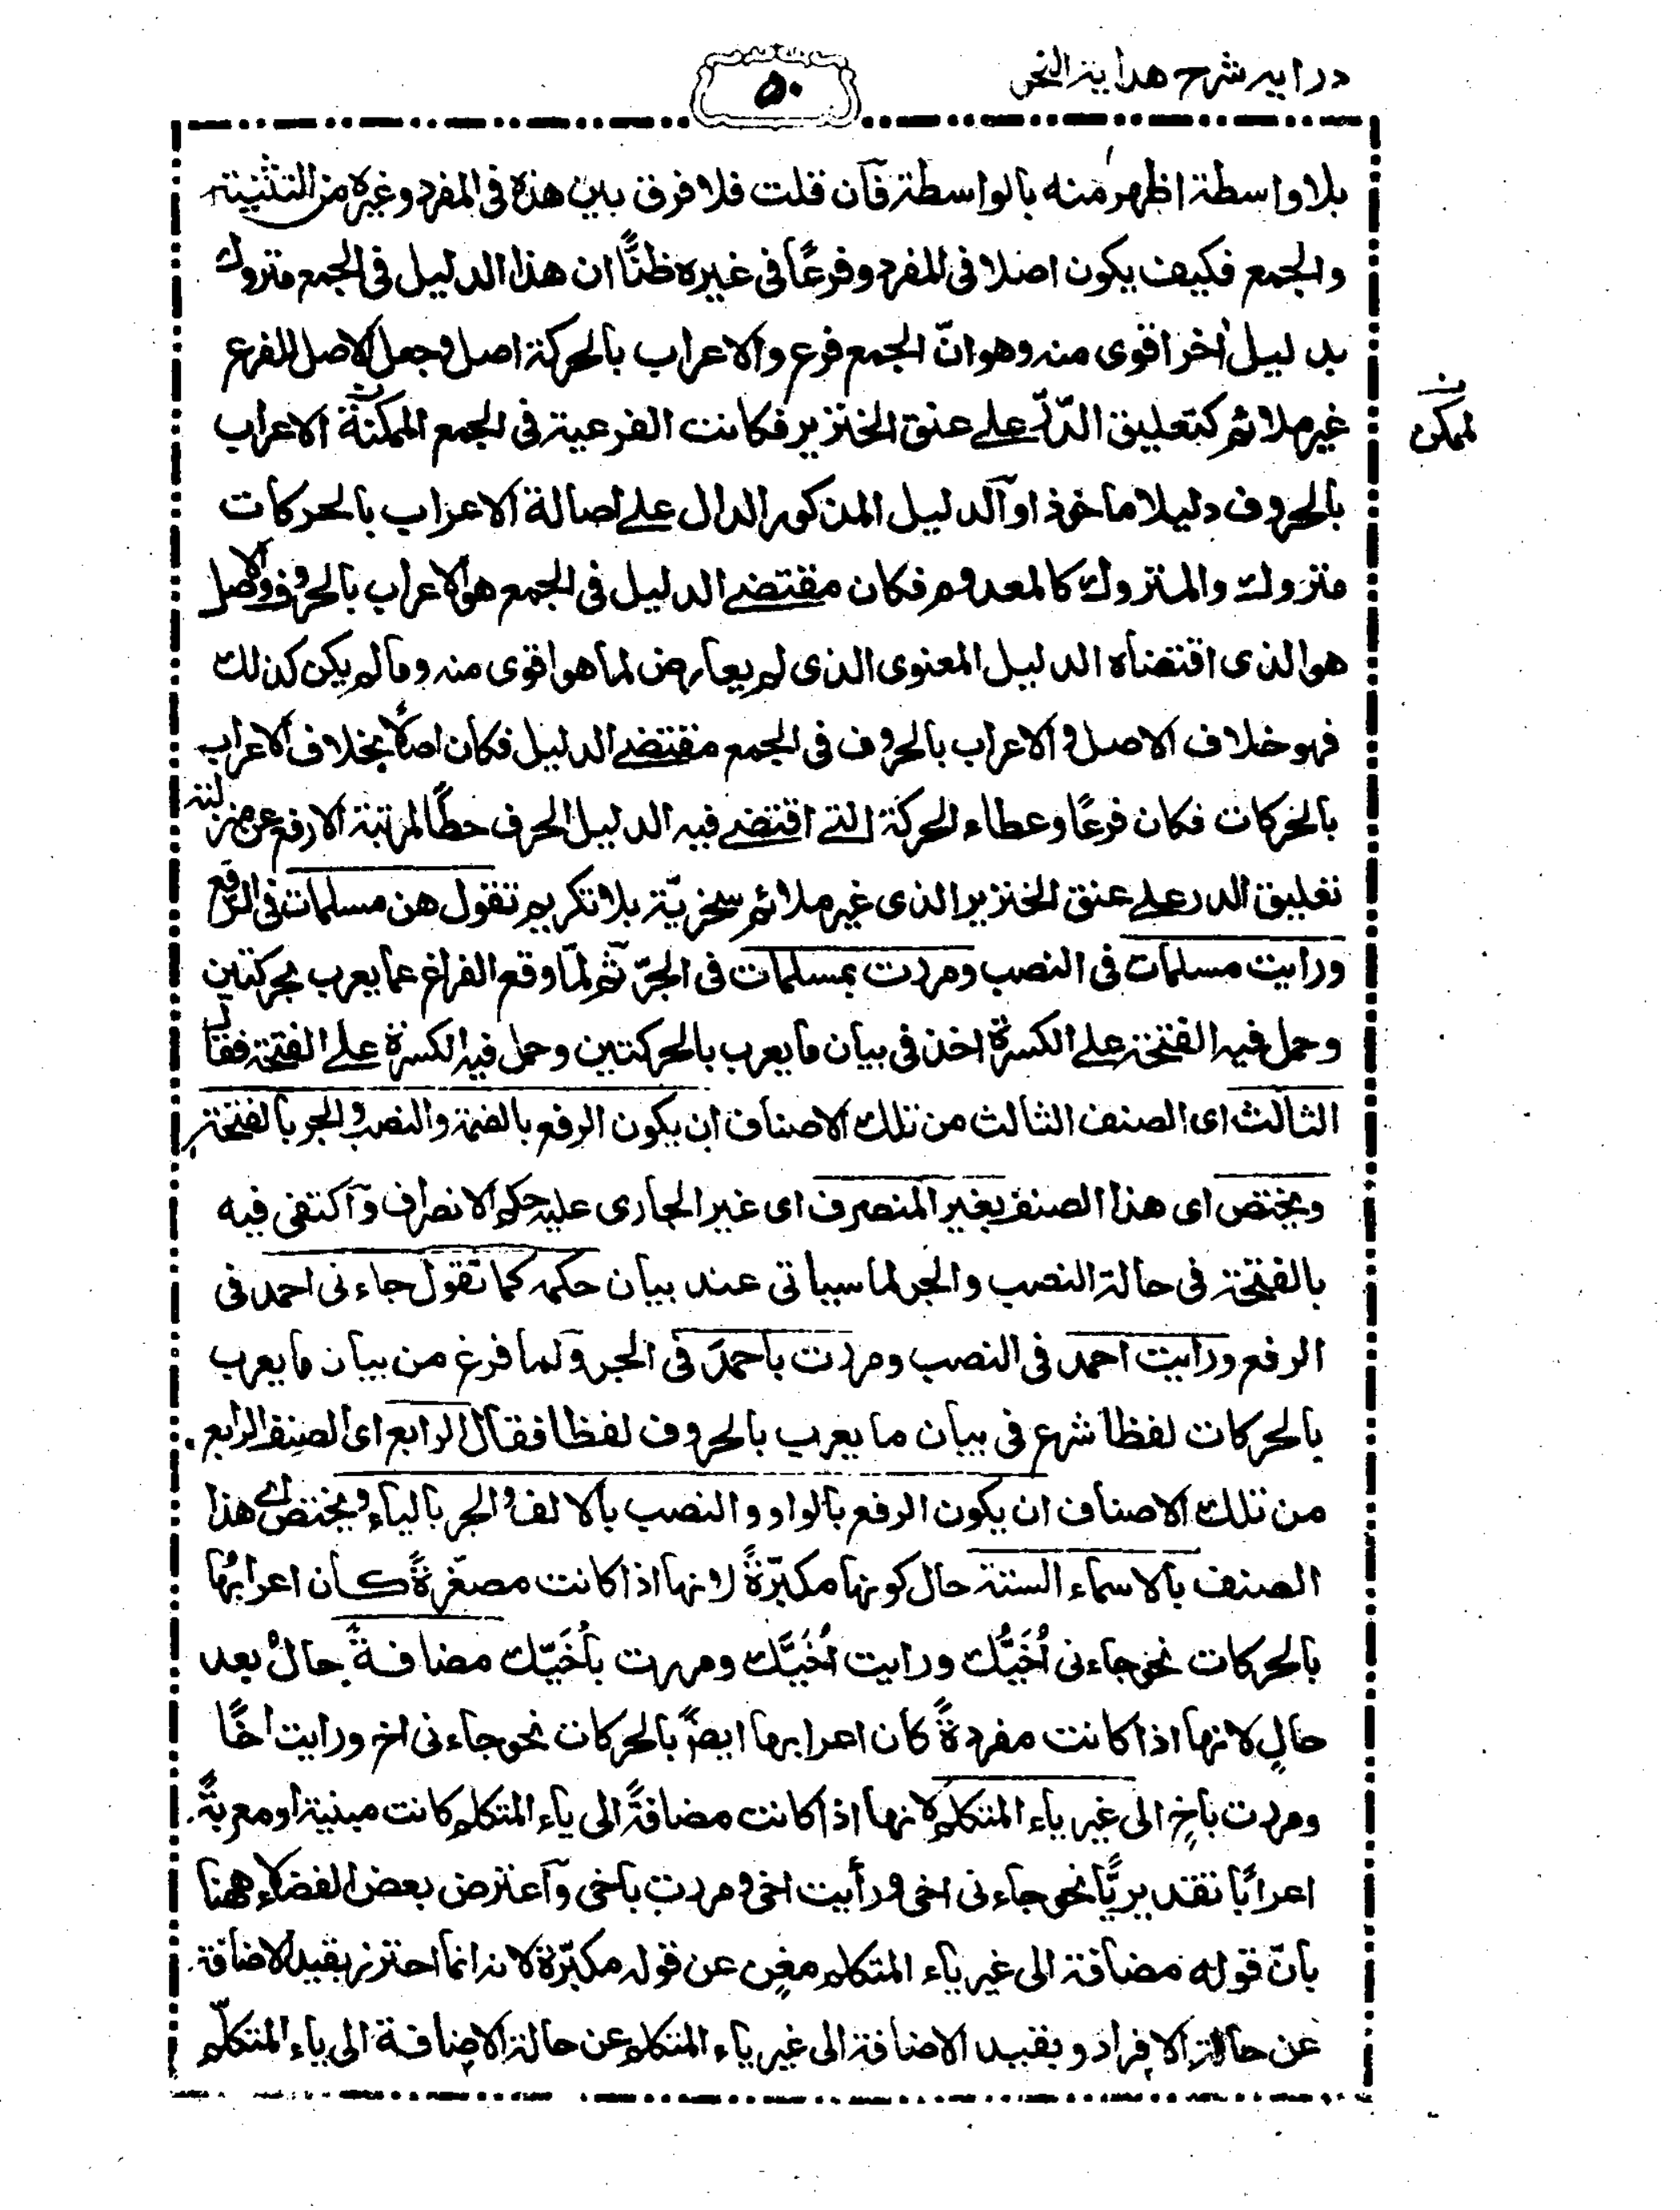 درایہ شرح هدایة النحو
۵۰
بلا واسطة اظهر منه بالواسطة فآن قلت فلا فرق بین هذه فی المفرد وغیره من التثنیة
والجمع فکیف یکون اصلا فی المفرد وفرعًا فی غیره ظنًّا ان هذا الدلیل فی الجمع متروك
بدلیل اٰخر اقوی منه وهو انّ الجمع فرع والاعراب بالحرکة اصل وجعل الاصل للفرع
غیر ملائم کتعلیق الدّرّ علے عنق الخنزیر فکانت الفرعیة فی الجمع الممکنة الاعراب
لممکن
بالحروف دلیلا ماخوذا و آلدلیل المذکور الدال علے اصالة الاعراب بالحرکات
متروك والمتروك کالمعدوم فکان مقتضے الدلیل فی الجمع هو الاعراب بالحروف والاصل
هو الذی اقتضاه الدلیل المعنوی الذی لم یعارض لما هو اقوی منه وما لم یکن کذلك
فهو خلاف الاصل والاعراب بالحروف فی الجمع مقتضے الدلیل فکان اصلًا بخلاف الاعراب
بالحرکات فکان فرعًا وعطاء الحرکة التے اقتضے فیه الدلیل الحرف حطًّا لمرتبة الارفع عن منزلته
تعلیق الدرر علے عنق الخنزیر الذی غیر ملائم سخریّة بلا تکریم تقول هن مسلمات فی الرفع
ورایت مسلمات فی النصب ومررت بمسلمات فی الجرّ ثم لمّا وقع الفراغ عما یعرب بحرکتین
وحمل فیه الفتحة علے الکسرة اخذ فی بیان ما یعرب بالحرکتین وحمل فیه الکسرة علے الفتحة فقال
الثالث ای الصنف الثالث من تلك الاصناف ان یکون الرفع بالضمة والنصب والجر بالفتحة
ویختص ای هذا الصنف بغیر المنصرف ای غیر الجاری علیه حکم الانصراف وآکتفی فیه
بالفتحة فی حالة النصب والجر لما سیاتی عند بیان حکمه کما تقول جاءنی احمد فی
الرفع ورایت احمد فی النصب ومررت باحمدَ فی الجر ولما فرغ من بیان ما یعرب
بالحرکات لفظا شرع فی بیان ما یعرب بالحروف لفظا فقال الرابع ای الصنف الرابع
من تلك الاصناف ان یکون الرفع بالواو والنصب بالالف والجر بالیاء ویختص اے هذا
الصنف بالاسماء الستة حال کونها مکبّرةً لانها اذا کانت مصغّرةً کان اعرابُها
بالحرکات نحو جاءنی اُخَیُّك ورایت اُخَیَّك ومررت باُخَیِّك مضافةً حالٌ بعد
حالٍ لانها اذا کانت مفردةً کان اعرابها ایضًا بالحرکات نحو جاءنی اخ ورایت اخًا
ومررت باخٍ الی غیر یاء المتکلم لانها اذا کانت مضافةً الی یاء المتکلم کانت مبنیة او معربةً
اعرابًا تقدیریًّا نحو جاءنی اخی ورأیت اخی ومررت باخی وآعترض بعض الفضلاء ههنا
بانّ قوله مضافة الی غیر یاء المتکلم مغنٍ عن قوله مکبّرة لانه انما احترز بقید الاضافة
عن حالة الافراد وبقید الاضافة الی غیر یاء المتکلم عن حالة الاضافة الی یاء المتکلّم